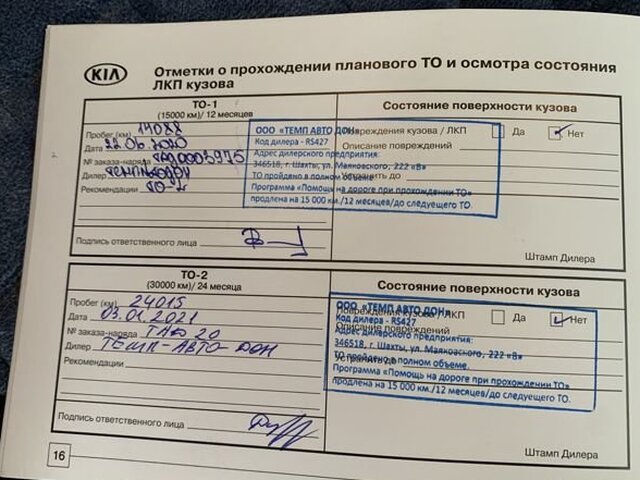 KIA
Отметки о прохождении планового ТО и осмотра состояния
ЛКП кузова
ТО-1
(15000 км)/ 12 месяцев
Пробег (км) 14088
Дата 22.06.2020
№ заказа-наряда
Дилер
Рекомендации ТО-2
Подпись ответственного лица
Состояние поверхности кузова
Повреждения кузова / ЛКП Да Нет
Описание повреждений
Устранить до
ООО «ТЕМП АВТО ДОН»
Код дилера - RS427
Адрес дилерского предприятия:
346518, г. Шахты, ул. Маяковского, 222 «В»
ТО пройдено в полном объеме.
Программа «Помощь на дороге при прохождении ТО»
продлена на 15 000 км./12 месяцев/до следующего ТО.
Штамп Дилера
ТО-2
(30000 км)/ 24 месяца
Пробег (км) 24015
Дата 03.01.2021
№ заказа-наряда
Дилер ТЕМП-АВТО ДОН
Рекомендации
Подпись ответственного лица
Состояние поверхности кузова
Повреждения кузова / ЛКП Да Нет
Описание повреждений
Устранить до
ООО «ТЕМП АВТО ДОН»
Код дилера - RS427
Адрес дилерского предприятия:
346518, г. Шахты, ул. Маяковского, 222 «В»
ТО пройдено в полном объеме.
Программа «Помощь на дороге при прохождении ТО»
продлена на 15 000 км./12 месяцев/до следующего ТО.
Штамп Дилера
16